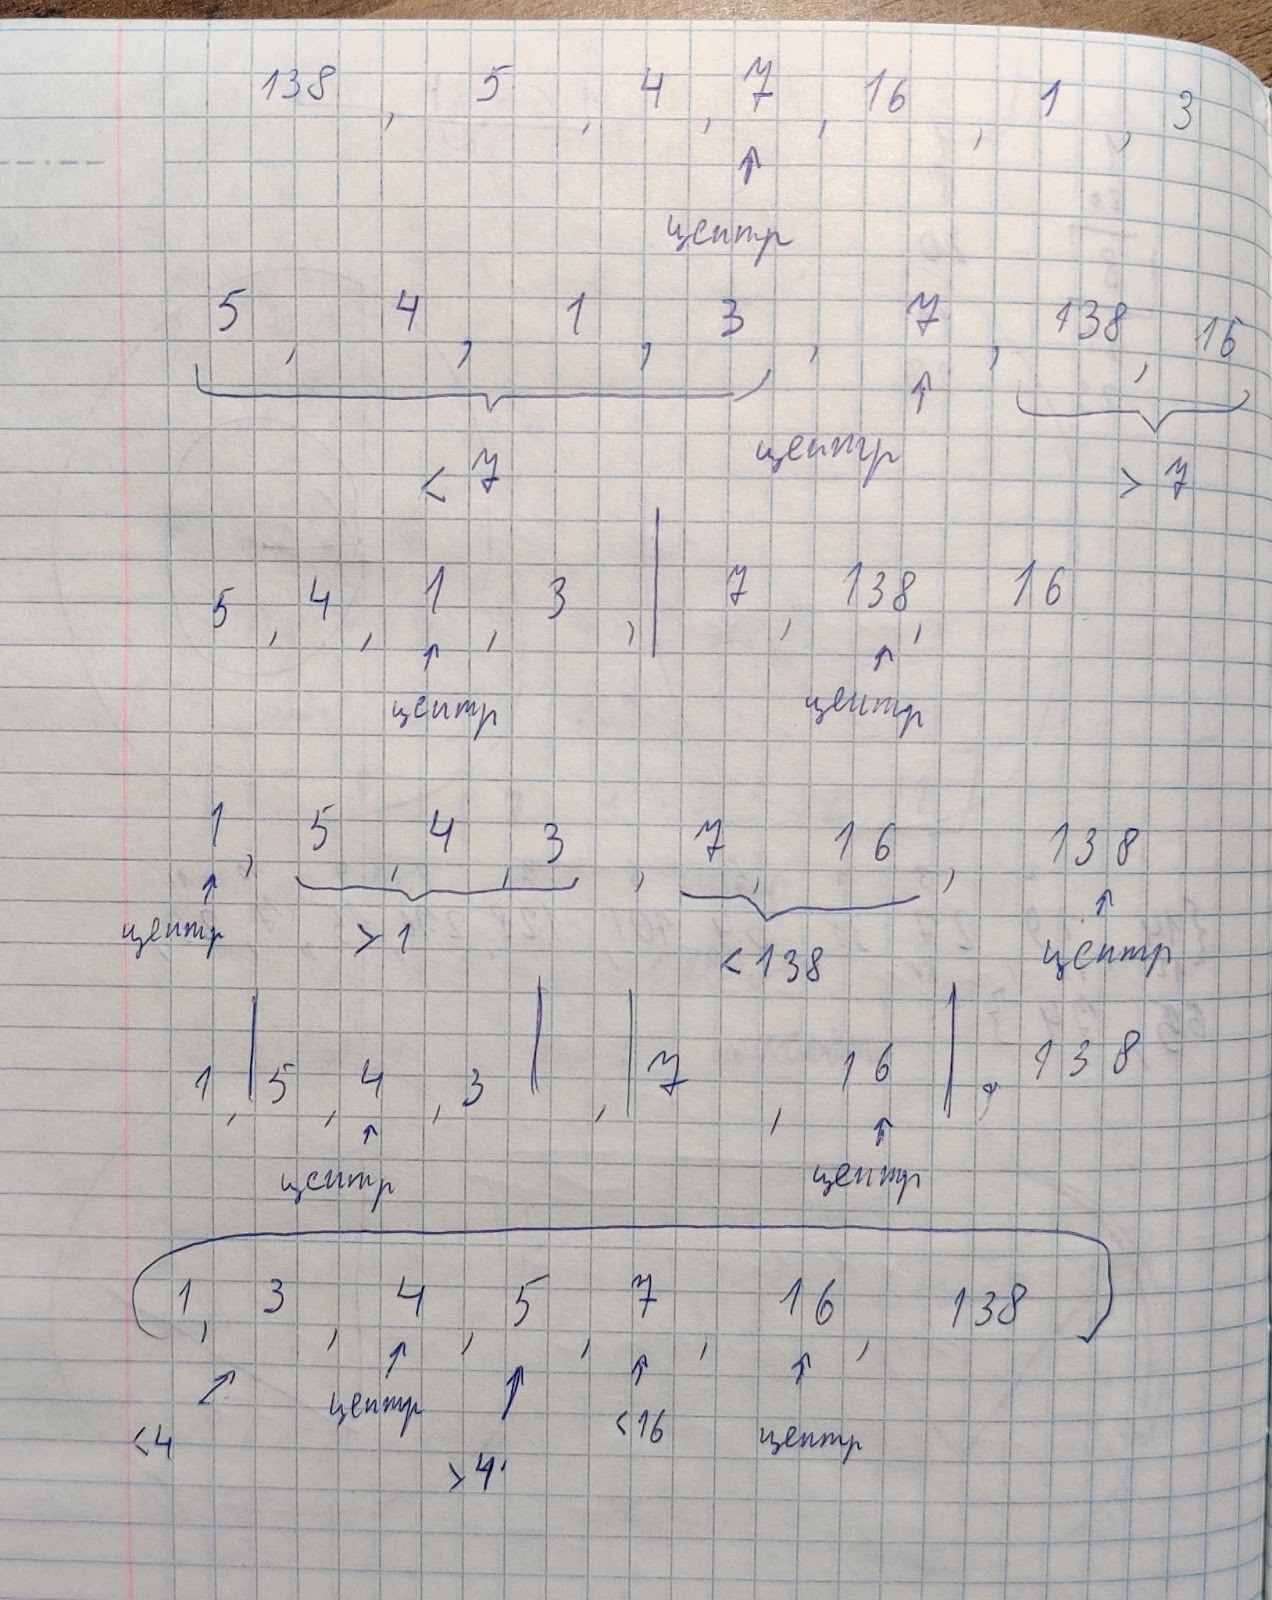 138, 5, 4, 7, 16, 1, 3
↑
центр
5, 4, 1, 3, 7, 138, 16
↑
центр
< 7 > 7
5, 4, 1, 3, | 7, 138, 16
↑ ↑
центр центр
1, 5, 4, 3, 7, 16, 138
↑ ↑
центр > 1 < 138 центр
1, | 5, 4, 3 | , | 7, 16 | , 138
↑ ↑
центр центр
1, 3, 4, 5, 7, 16, 138
↑ ↑ ↑ ↑ ↑
<4 центр >4 <16 центр